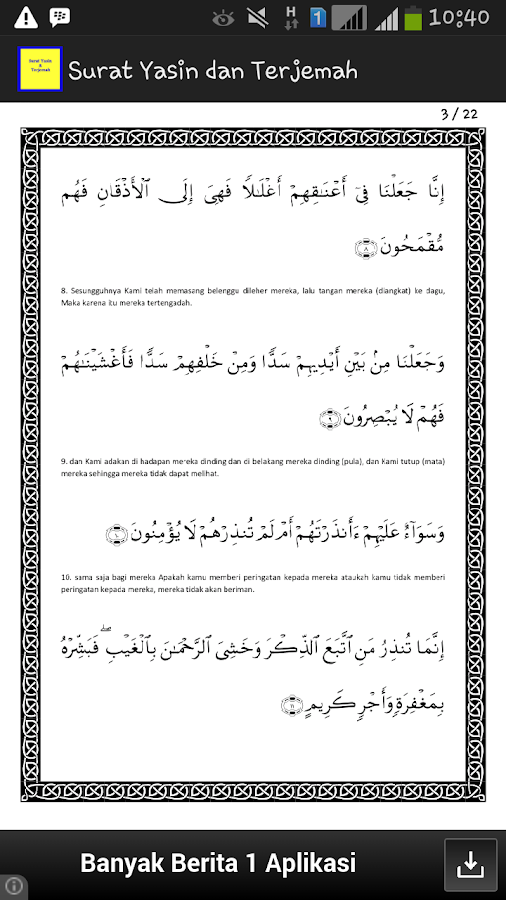 H 1 10:40
Surat Yasin dan Terjemah
3 / 22
إِنَّا جَعَلْنَا فِىٓ أَعْنَـٰقِهِمْ أَغْلَـٰلًا فَهِىَ إِلَى ٱلْأَذْقَانِ فَهُم
مُّقْمَحُونَ ٨
8. Sesungguhnya Kami telah memasang belenggu dileher mereka, lalu tangan mereka (diangkat) ke dagu,
Maka karena itu mereka tertengadah.
وَجَعَلْنَا مِنۢ بَيْنِ أَيْدِيهِمْ سَدًّا وَمِنْ خَلْفِهِمْ سَدًّا فَأَغْشَيْنَـٰهُمْ
فَهُمْ لَا يُبْصِرُونَ ٩
9. dan Kami adakan di hadapan mereka dinding dan di belakang mereka dinding (pula), dan Kami tutup (mata)
mereka sehingga mereka tidak dapat melihat.
وَسَوَآءٌ عَلَيْهِمْ ءَأَنذَرْتَهُمْ أَمْ لَمْ تُنذِرْهُمْ لَا يُؤْمِنُونَ ١٠
10. sama saja bagi mereka Apakah kamu memberi peringatan kepada mereka ataukah kamu tidak memberi
peringatan kepada mereka, mereka tidak akan beriman.
إِنَّمَا تُنذِرُ مَنِ ٱتَّبَعَ ٱلذِّكْرَ وَخَشِىَ ٱلرَّحْمَـٰنَ بِٱلْغَيْبِ ۖ فَبَشِّرْهُ
بِمَغْفِرَةٍ وَأَجْرٍ كَرِيمٍ ١١
Banyak Berita 1 Aplikasi